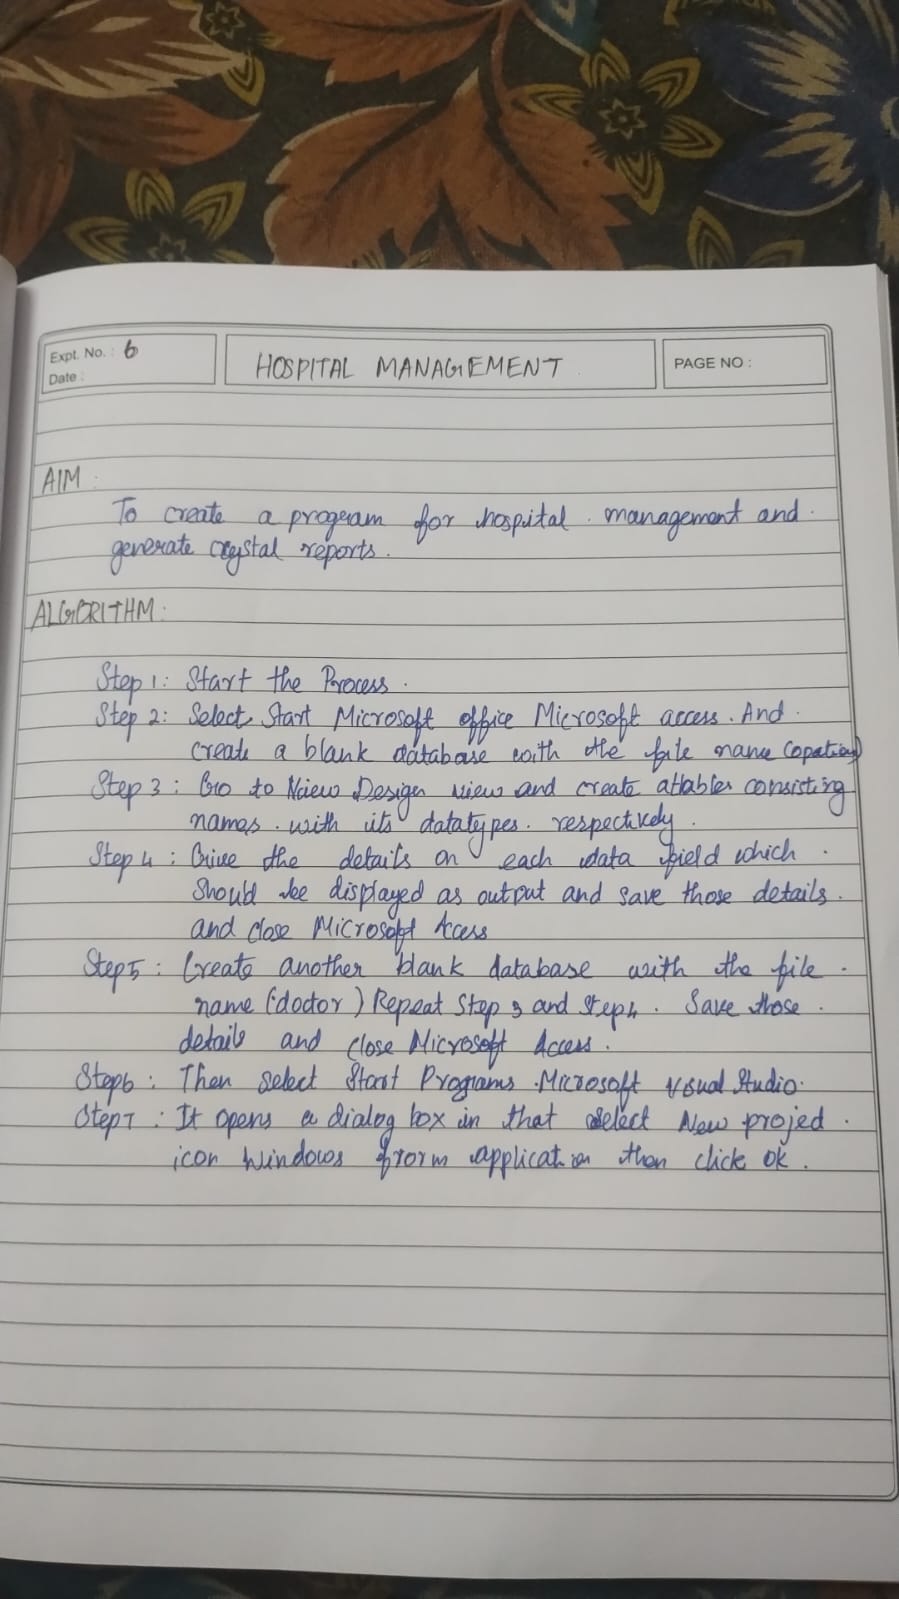 Expt. No. : 6
Date :
HOSPITAL MANAGEMENT
PAGE NO :
AIM :
To create a program for hospital management and
generate crystal reports.
ALGORITHM :
Step 1 : Start the Process.
Step 2 : Select Start Microsoft office Microsoft access. And
create a blank database with the file name
Step 3 : Go to Design view and create consisting
names with its datatypes respectively.
Step 4 : Give the details on each data field which
should be displayed as output and save those details.
and close Microsoft Access
Step5 : Create another blank database with the file
name (doctor) Repeat Step 3 and Step4. Save those
details and close Microsoft Access.
Step6 : Then select Start Programs Microsoft Visual Studio.
Step7 : It opens a dialog box in that select New project
icon Windows form application then click ok.